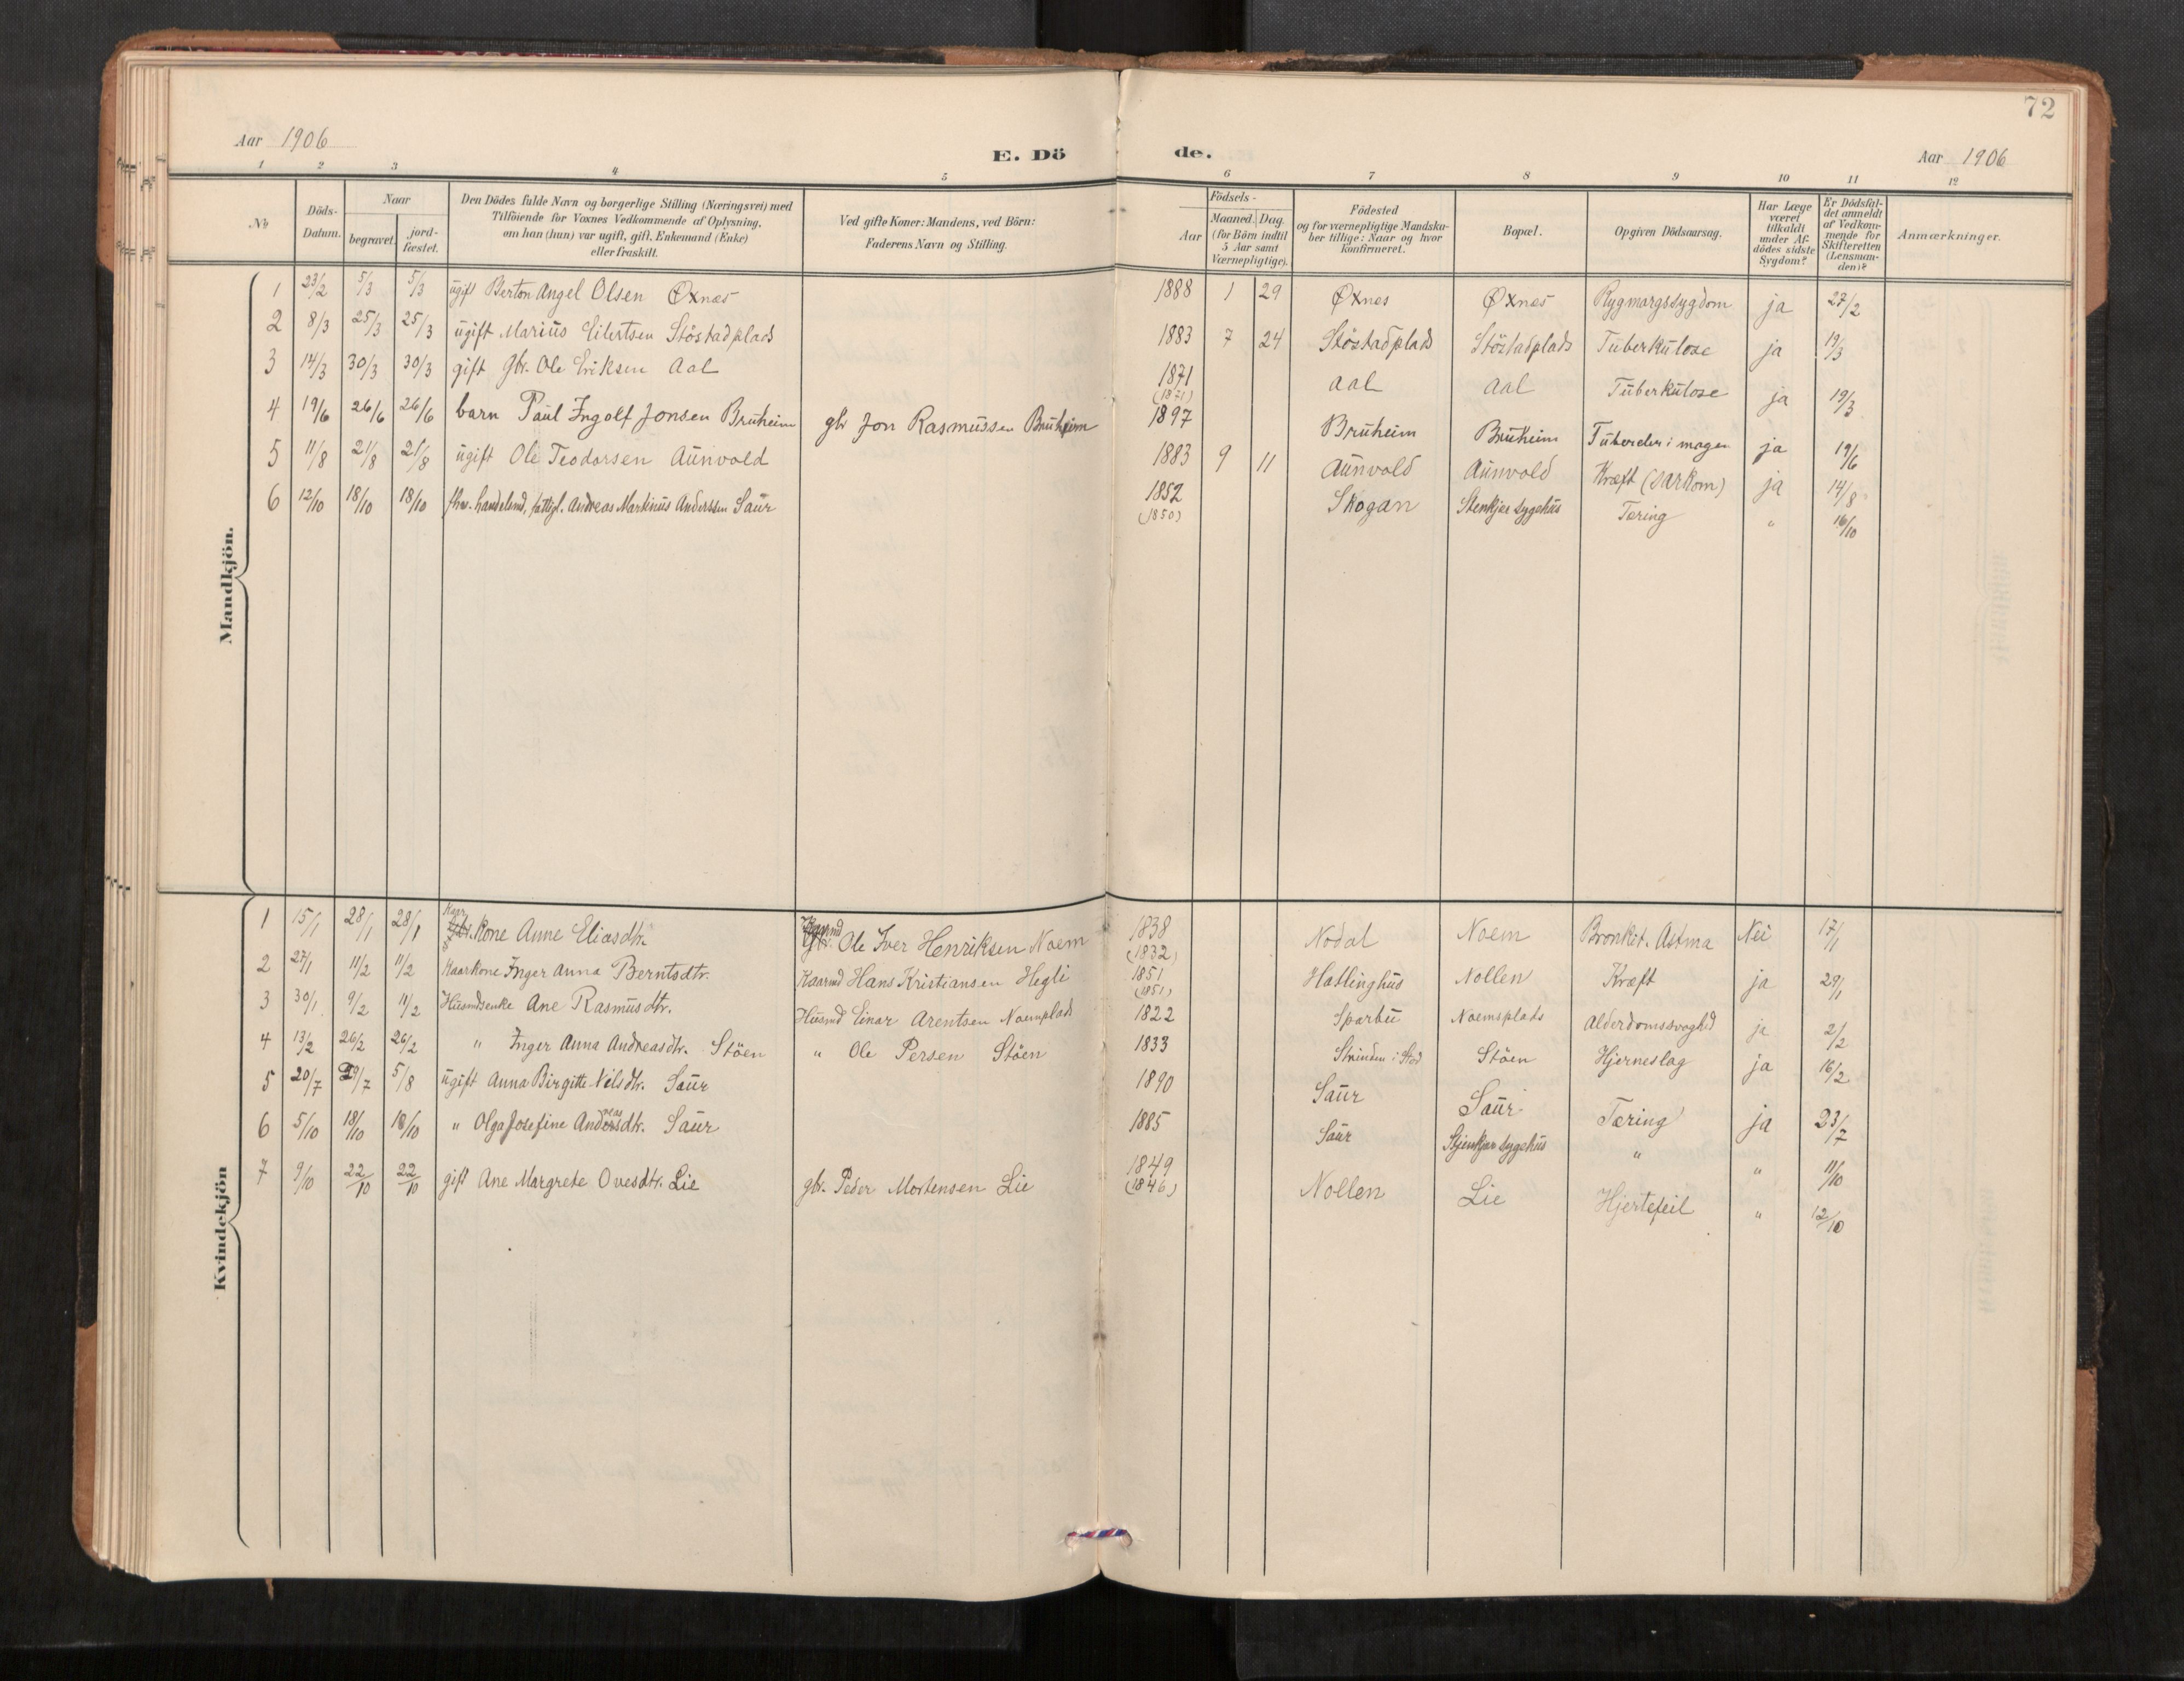 72
Aar 1906
E. Dö
de.
Aar 1906
1 2 3 4 5 6 7 8 9 10 11 12
No
Döds-Datum.
Naar
begravet.
jord-fæstet.
Den Dödes fulde Navn og borgerlige Stilling (Næringsvei) med
Tilföiende for Voxnes Vedkommende af Oplysning,
om han (hun) var ugift, gift, Enkemand (Enke)
eller fraskilt.
Ved gifte Koner: Mandens, ved Börn:
Faderens Navn og Stilling.
Aar
Födsels-
Maaned. Dag.
(for Börn indtil
5 Aar samt
Værnepligtige).
Födested
og for værnepligtige Mandska-
ber tillige: Naar og hvor
konfirmeret.
Bopæl.
Opgiven Dödsaarsag.
Har Læge
været
tilkaldt
under Af-
dödes sidste
Sygdom?
Er Dödsfal-
det anmeldt
af Vedkom-
mende for
Skifteretten
(Lensman-
den)?
Anmærkninger.
Mandkjön.
1 23/2 5/3 5/3 ugift Berton Angel Olsen Øxnes 1888 1 29 Øxnes Øxnes Rygmargssygdom ja 27/2
2 8/3 25/3 25/3 ugift Marius Eilertsen Stöstadplads 1883 7 24 Stöstadplads Stöstadplads Tuberkulose ja 19/3
3 14/3 30/3 30/3 gift Gbr. Ole Eriksen Aal 1871 (1871) Aal Aal Tuberkulose ja 19/3
4 19/6 26/6 26/6 barn Paul Ingolf Jonsen Bruheim gbr Jon Rasmussen Bruheim 1897 Bruheim Bruheim Tuberkler i magen ja 19/6
5 11/8 21/8 21/8 ugift Ole Teodorsen Aunvold 1883 9 11 Aunvold Aunvold Kræft (sarkom) ja 14/8
6 12/10 18/10 18/10 fhv. handelsmd, fattigl. Andreas Martinus Anderssen Saur 1852 (1850) Skogan Stenkjær sygehus Tæring " 16/10
Kvindekjön
1 15/1 28/1 28/1 Kaar Kone Anne Eliasdtr. Kaarmd Ole Iver Henriksen Noem 1838 (1832) Nodal Noem Bronkit. Astma Nei 17/1
2 27/1 11/2 11/2 Kaarkone Inger Anna Berntsdtr. Kaarmd Hans Kristiansen Hegli 1851 (1851) Hatlinghus Nollen Kræft ja 29/1
3 30/1 9/2 11/2 Husmdsenke Ane Rasmusdtr. Husmd Einar Arentsen Noemplads 1822 Sparbu Noemsplads Alderdomssvaghed ja 2/2
4 13/2 26/2 26/2 " Inger Anna Andreasdtr. Stöen " Ole Persen Stöen 1833 Strinden i Stod Stöen Hjerneslag ja 16/2
5 20/7 29/7 5/8 ugift Anna Birgitte Nilsdtr. Saur 1890 Saur Saur Tæring ja 23/7
6 5/10 18/10 18/10 " Olga Josefine Andreasdtr. Saur 1885 Saur Stjenkjær sygehus " " 11/10
7 9/10 22/10 22/10 gift Ane Margrete Ovesdtr. Lie gbr. Peder Mortensen Lie 1849 (1846) Nollen Lie Hjertefeil " 12/10